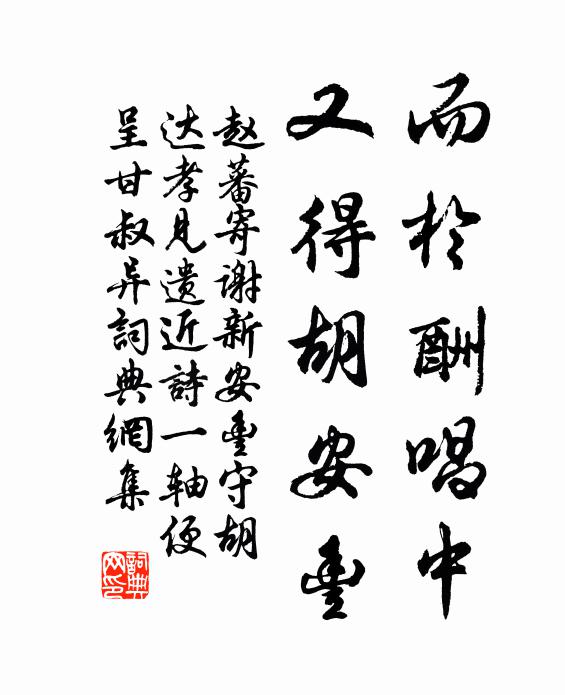 而於酬唱中
又得胡安豊
赵蕃寄谢新安豊守胡
达孝見遗近詩一軸便
呈甘叔异詞典網集
詞典网印